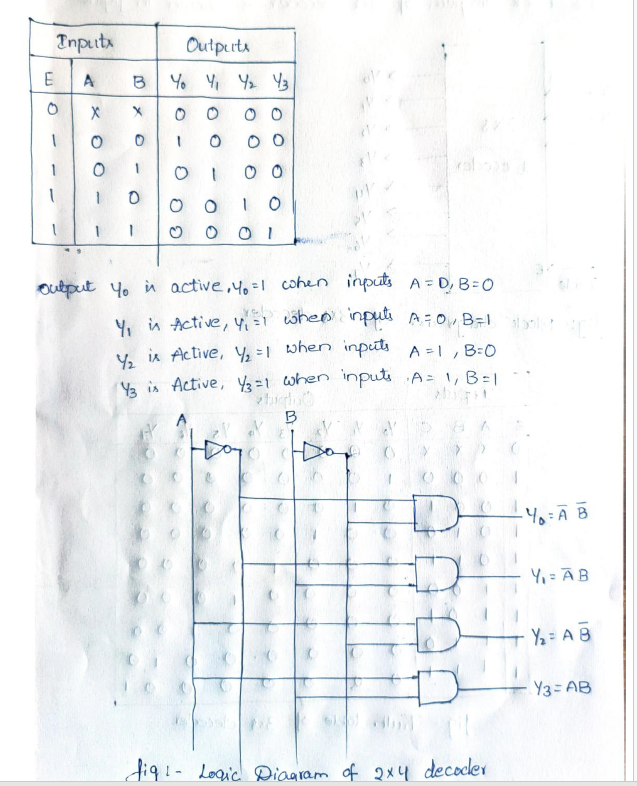 Inputs Outputs
E A B Y0 Y1 Y2 Y3
0 x x 0 0 0 0
1 0 0 1 0 0 0
1 0 1 0 1 0 0
1 1 0 0 0 1 0
1 1 1 0 0 0 1
output Y0 is active, Y0=1 when inputs A=0, B=0
Y1 is Active, Y1=1 when inputs A=0, B=1
Y2 is Active, Y2=1 when inputs A=1, B=0
Y3 is Active, Y3=1 when inputs A=1, B=1
A B
Y0=Ā B̄
Y1=Ā B
Y2=A B̄
Y3=AB
fig :- Logic Diagram of 2x4 decoder